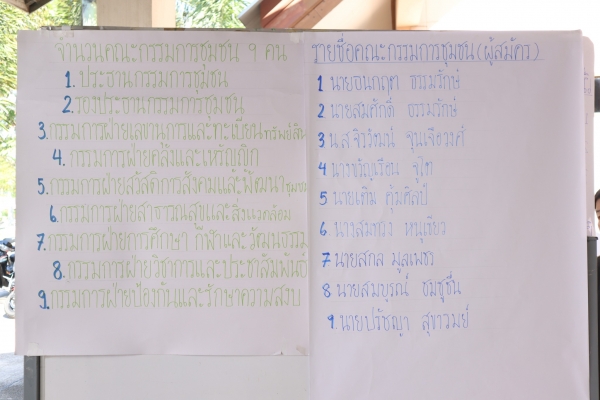 จำนวนคณะกรรมการชุมชน 9 คน
1. ประธานกรรมการชุมชน
2. รองประธานกรรมการชุมชน
3. กรรมการฝ่ายเลขานุการและทะเบียนทรัพย์สิน
4. กรรมการฝ่ายคลังและเหรัญญิก
5. กรรมการฝ่ายสวัสดิการสังคมและพัฒนาชุมชน
6. กรรมการฝ่ายสาธารณสุขและสิ่งแวดล้อม
7. กรรมการฝ่ายการศึกษา กีฬาและวัฒนธรรม
8. กรรมการฝ่ายวิชาการและประชาสัมพันธ์
9. กรรมการฝ่ายป้องกันและรักษาความสงบ
รายชื่อคณะกรรมการชุมชน (ผู้สมัคร)
1 นายธนกฤต ธรรมรักษ์
2 นายสมศักดิ์ ธรรมรักษ์
3 น.ส.จิรวัฒน์ จุนเจือวงศ์
4 นางขวัญเรือน จูไต
5 นายเติม คุ้มศิลป์
6 นางสมทรง หนูเขียว
7 นายสกล มูลเพชร
8 นายสมบูรณ์ ชมชูชื่น
9. นายปรัชญา สุขาวมย์